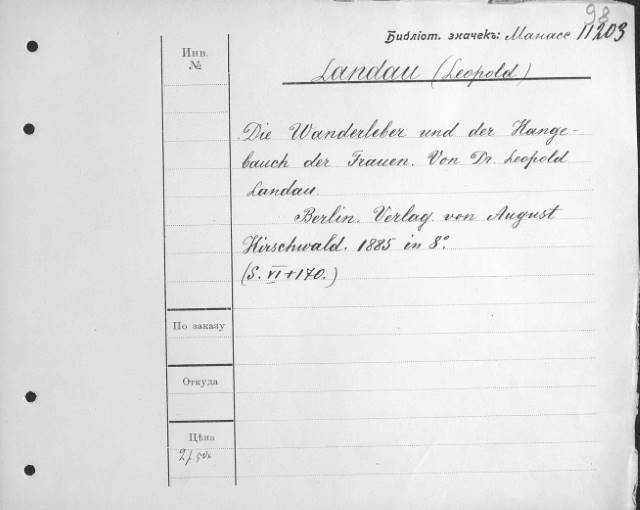 98
Библіот. значекъ: Манасс 11203
Инв.
№
Landau (Leopold)
Die Wanderleber und der Hange-
bauch der Frauen. Von Dr. Leopold
Landau.
Berlin. Verlag von August
Hirschwald. 1885 in 8°.
(S. VI+170.)
По заказу
Откуда
Цѣна